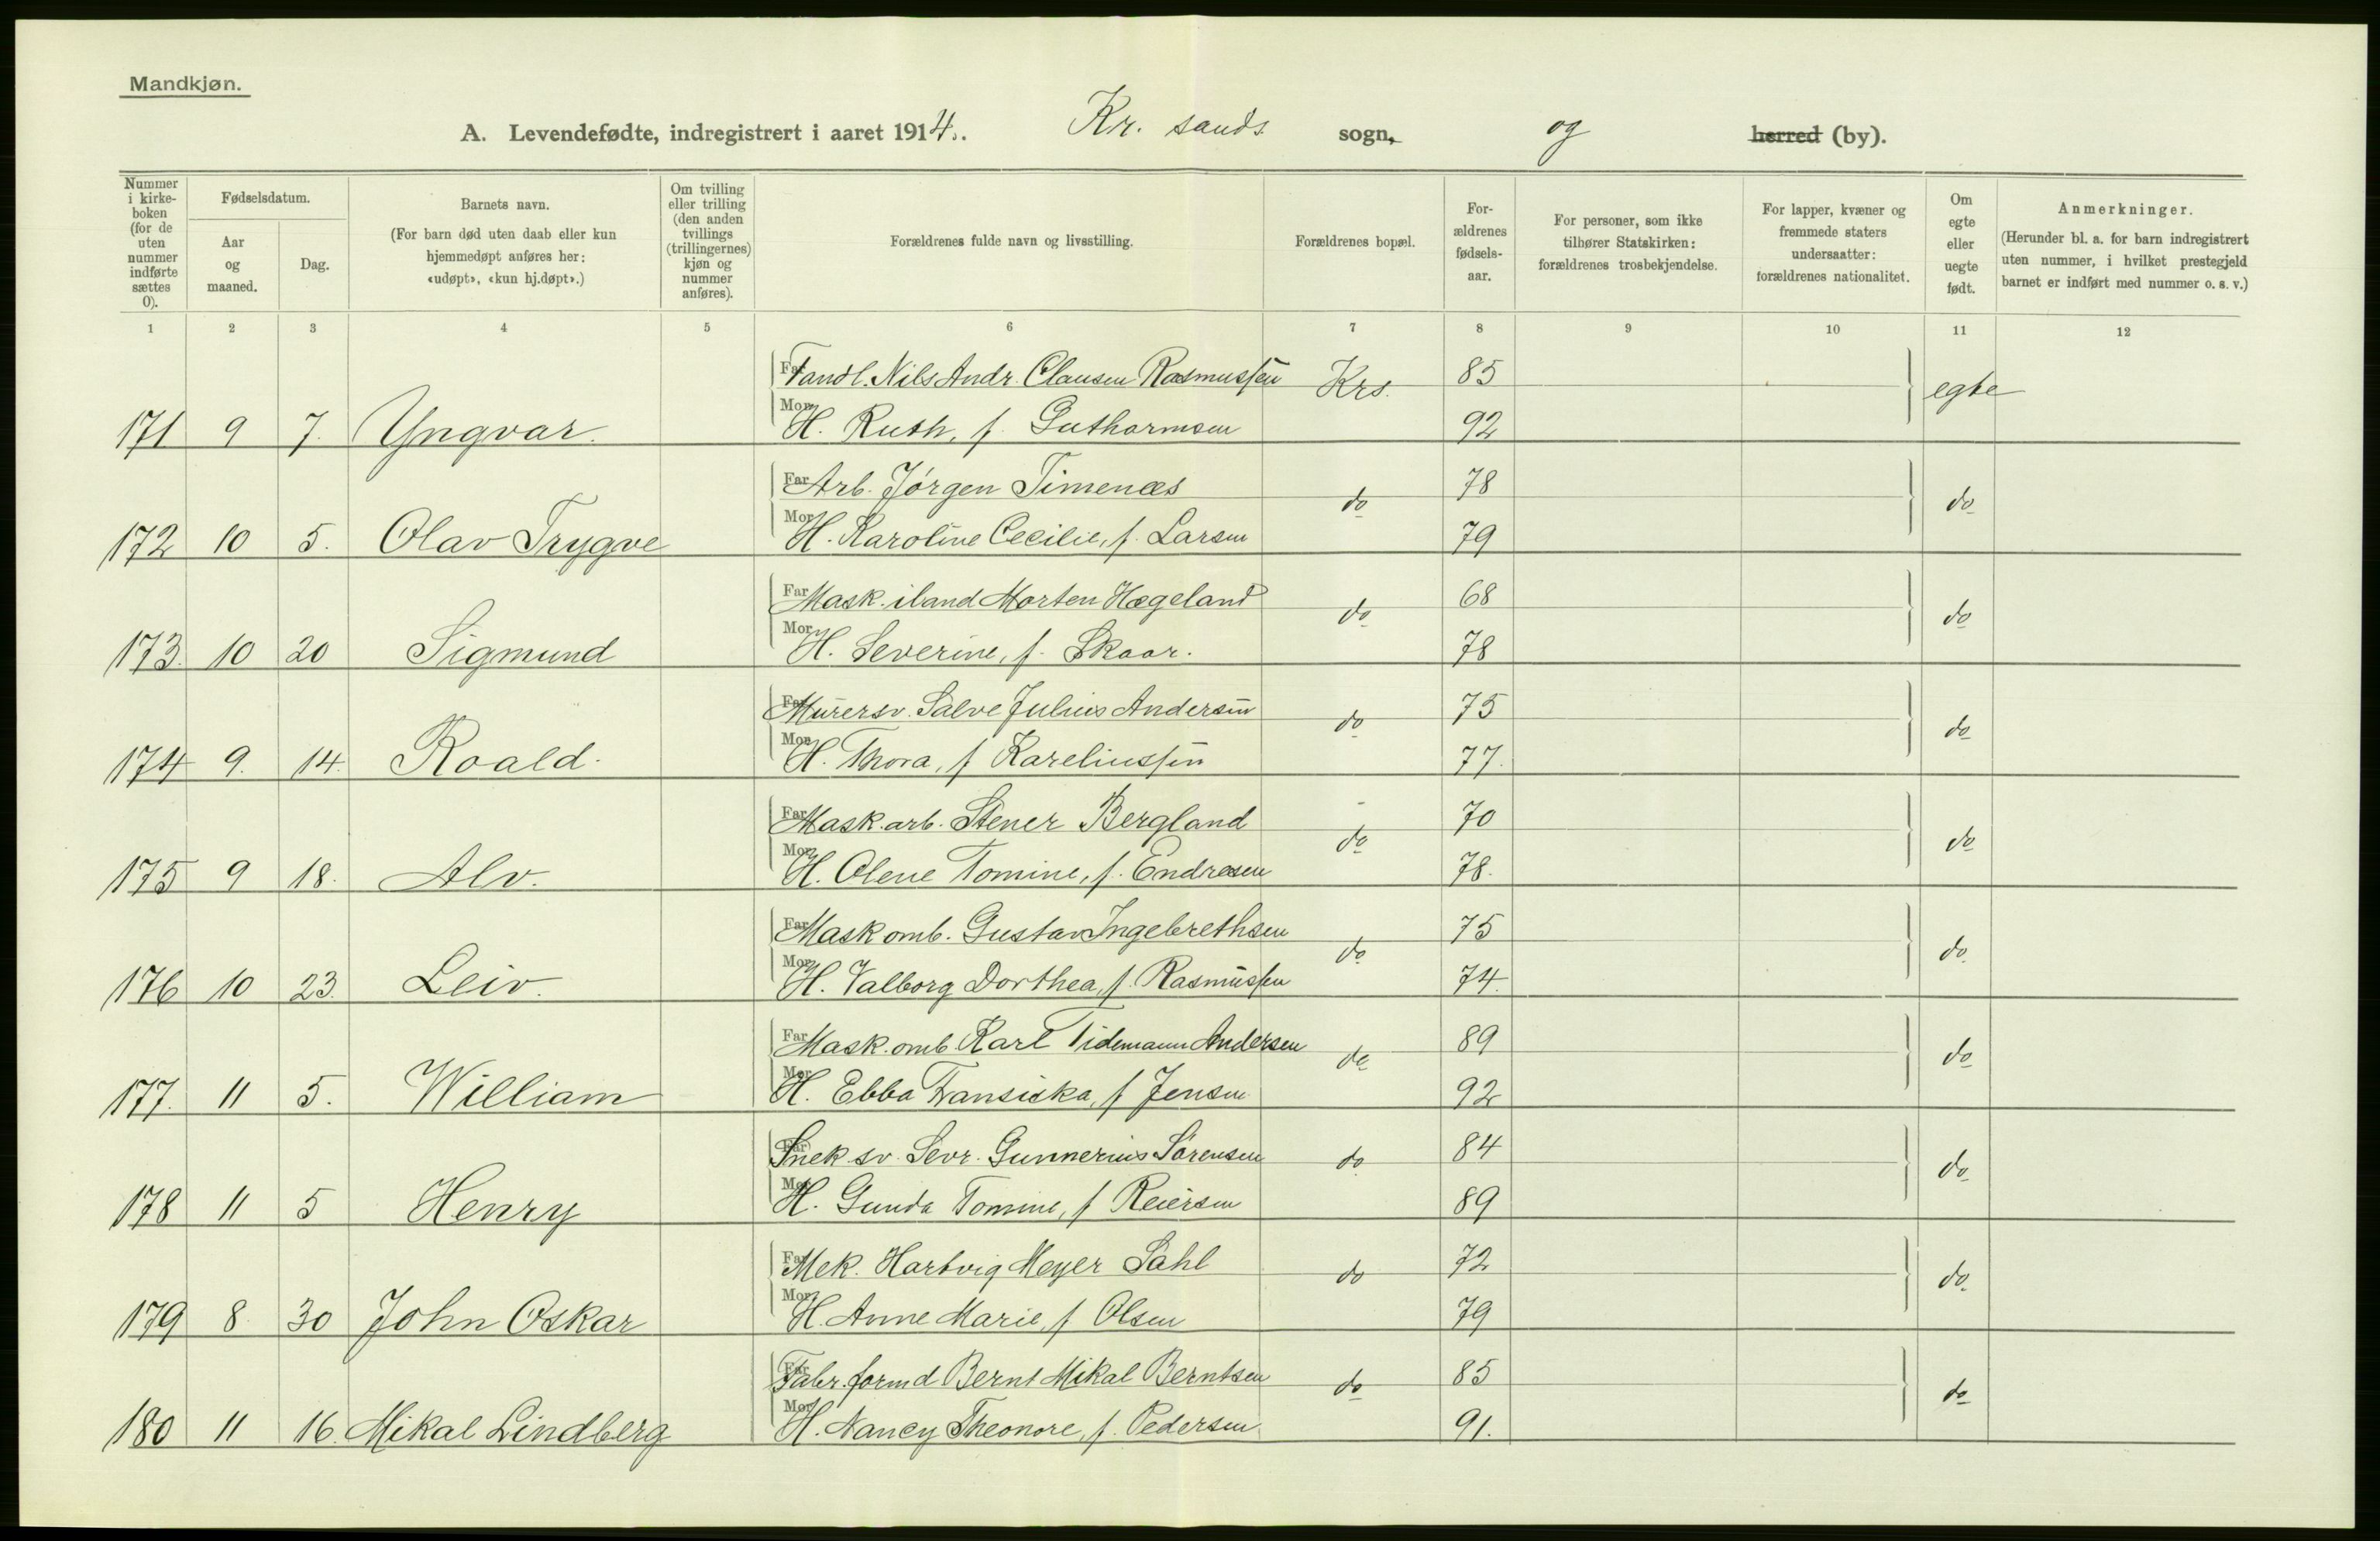 Mandkjøn.
A. Levendefødte, indregistrert i aaret 1914. Kr. sands sogn, og herred (by).
Nummer i kirkeboken (for de uten nummer indførte sættes 0).
Fødselsdatum.
Aar og maaned.
Dag.
Barnets navn.
(For barn død uten daab eller kun hjemmedøpt anføres her: «udøpt», «kun hj.døpt».)
Om tvilling eller trilling (den anden tvillings (trillingernes) kjøn og nummer anføres).
Forældrenes fulde navn og livsstilling.
Forældrenes bopæl.
Forældrenes fødselsaar.
For personer, som ikke tilhører Statskirken: forældrenes trosbekjendelse.
For lapper, kvæner og fremmede staters undersaatter: forældrenes nationalitet.
Om egte eller uegte født.
Anmerkninger.
(Herunder bl. a. for barn indregistrert uten nummer, i hvilket prestegjeld barnet er indført med nummer o. s. v.)
1 2 3 4 5 6 7 8 9 10 11 12
Far Tandl. Nils Andr. Clausen Rasmussen Krs. 85 egte
171 9 7. Yngvar. Mor H. Ruth, f. Guthormsen 92
Far Arb. Jørgen Timenæs do 78 do
172 10 5. Olav Trygve Mor H. Karoline Cecilie, f. Larsen 79
Far Mask. iland Morten Hægeland do 68 do
173. 10 20 Sigmund Mor H. Severine, f. Skaar. 78
Far Murersv. Salve Julius Andersen do 75 do
174 9. 14. Roald. Mor H. Thora, f Kareliussen 77.
Far Mask. arb. Stener Bergland do 70 do
175 9 18. Alv. Mor H. Olene Tomine, f. Endresen 78.
Far Mask omb. Gustav Ingebrethsen do 75 do
176 10 23. Leiv. Mor H. Valborg Dorthea, f. Rasmussen 74.
Far Mask. omb. Karl Tidemann Andersen do 89 do
177. 11 5. William Mor H. Ebba Fransiska, f Jensen 92
Far Snek. sv. Sevr. Gunnerius Sørensen do 84 do
178 11 5 Henry Mor H. Gunda Tomine, f Reiersen 89
Far Mek. Hartvig Meyer Dahl do 72 do
179 8. 30 John Oskar Mor H. Anne Marie, f Olsen 79
Far Fabr. formd Bernt Mikal Berntsen do 85 do
180 11 16. Mikal Lindberg Mor H. Nancy Theonore, f. Pedersen 91.